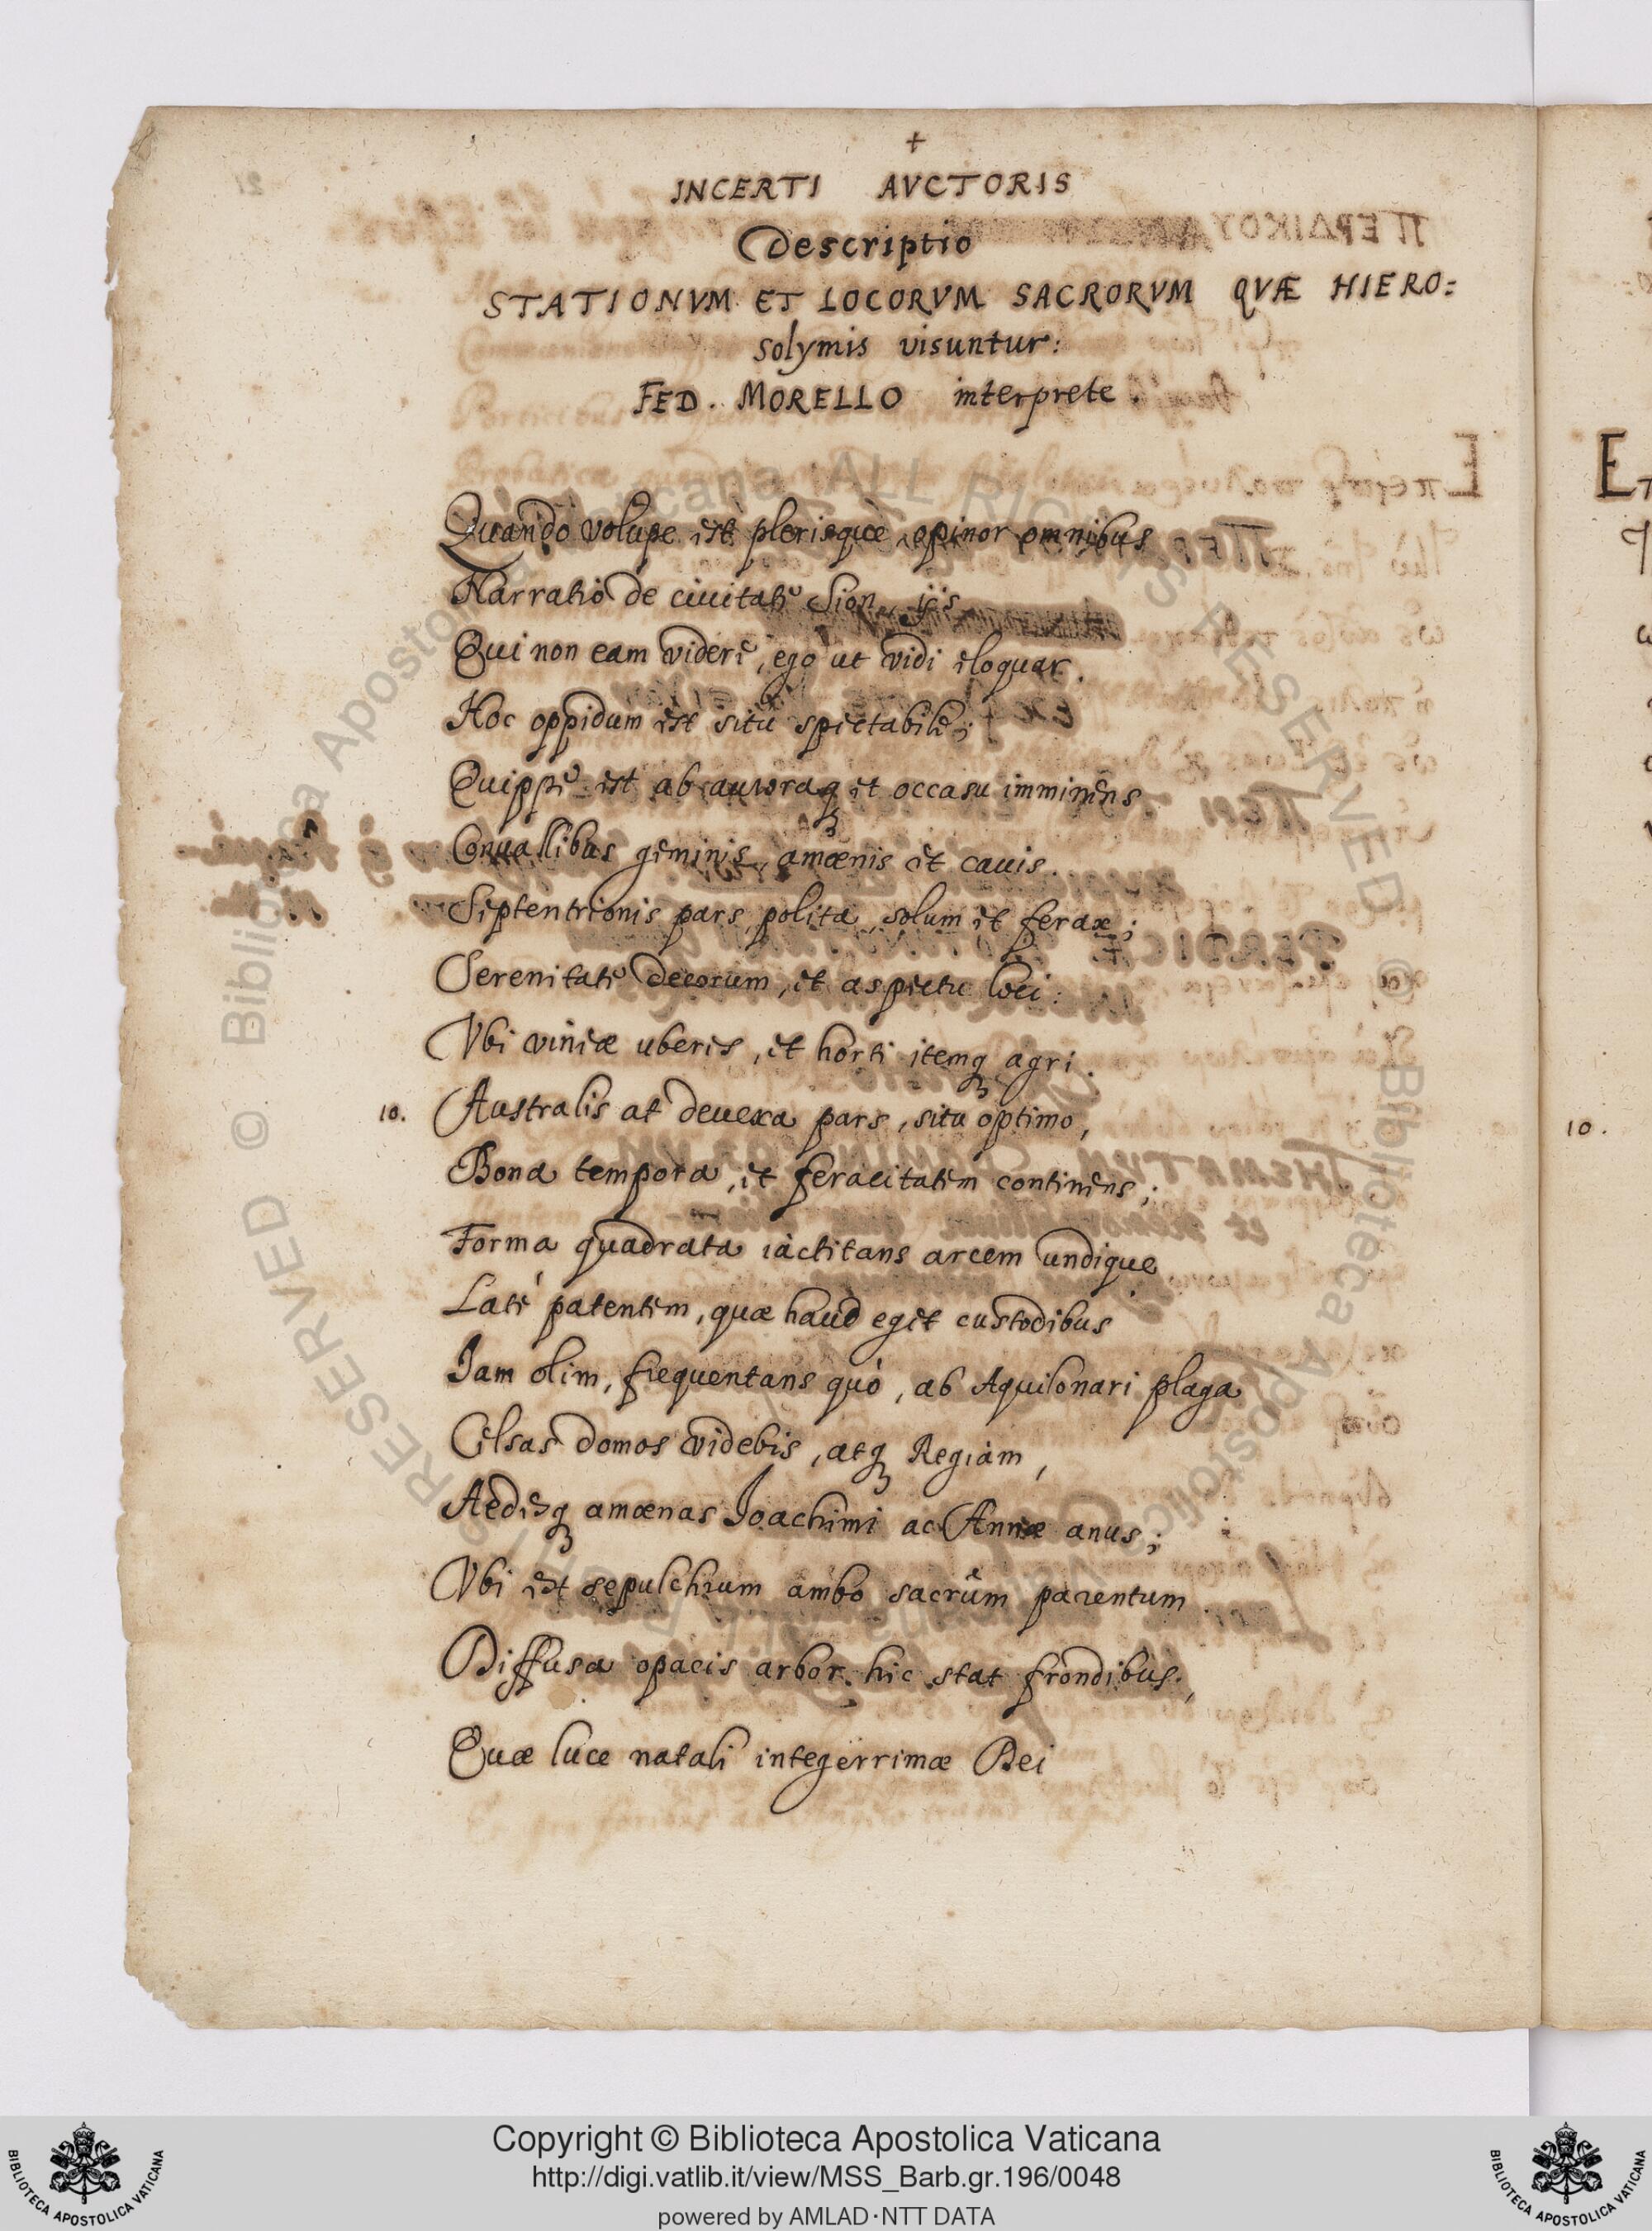 +
INCERTI AVCTORIS
Descriptio
STATIONVM ET LOCORVM SACRORVM QVÆ HIERO=
solymis visuntur:
FED. MORELLO interprete.
Quando volupe est plerisque, opinor omnibus
Narratio de ciuitate Sion, ijs
Qui non eam videre, ego ut vidi eloquar.
Hoc oppidum est situ spectabile;
Quippe est ab auroraq et occasu imminens
Conuallibus geminis, amœnis et cauis.
Septentrionis pars polita, solum et ferax;
Serenitate decorum, et aspectu loci:
Vbi vineæ uberes, et horti itemq agri.
10. Australis at deuexa pars, situ optimo,
Bona tempora, et feracitatem continens;
Forma quadrata iactitans arcem undique
Latè patentem, quæ haud eget custodibus
Iam olim, frequentans quò, ab Aquilonari plaga
Celsas domos videbis, atq Regiam,
Aedesq amœnas Joachimi ac Annæ anus;
Vbi est sepulchrum ambo sacrûm parentum
Diffusa opacis arbor hic stat frondibus,
Quæ luce natali integerrimæ Dei
10.
Copyright © Biblioteca Apostolica Vaticana
http://digi.vatlib.it/view/MSS_Barb.gr.196/0048
powered by AMLAD·NTT DATA
BIBLIOTECA APOSTOLICA VATICANA
BIBLIOTECA APOSTOLICA VATICANA